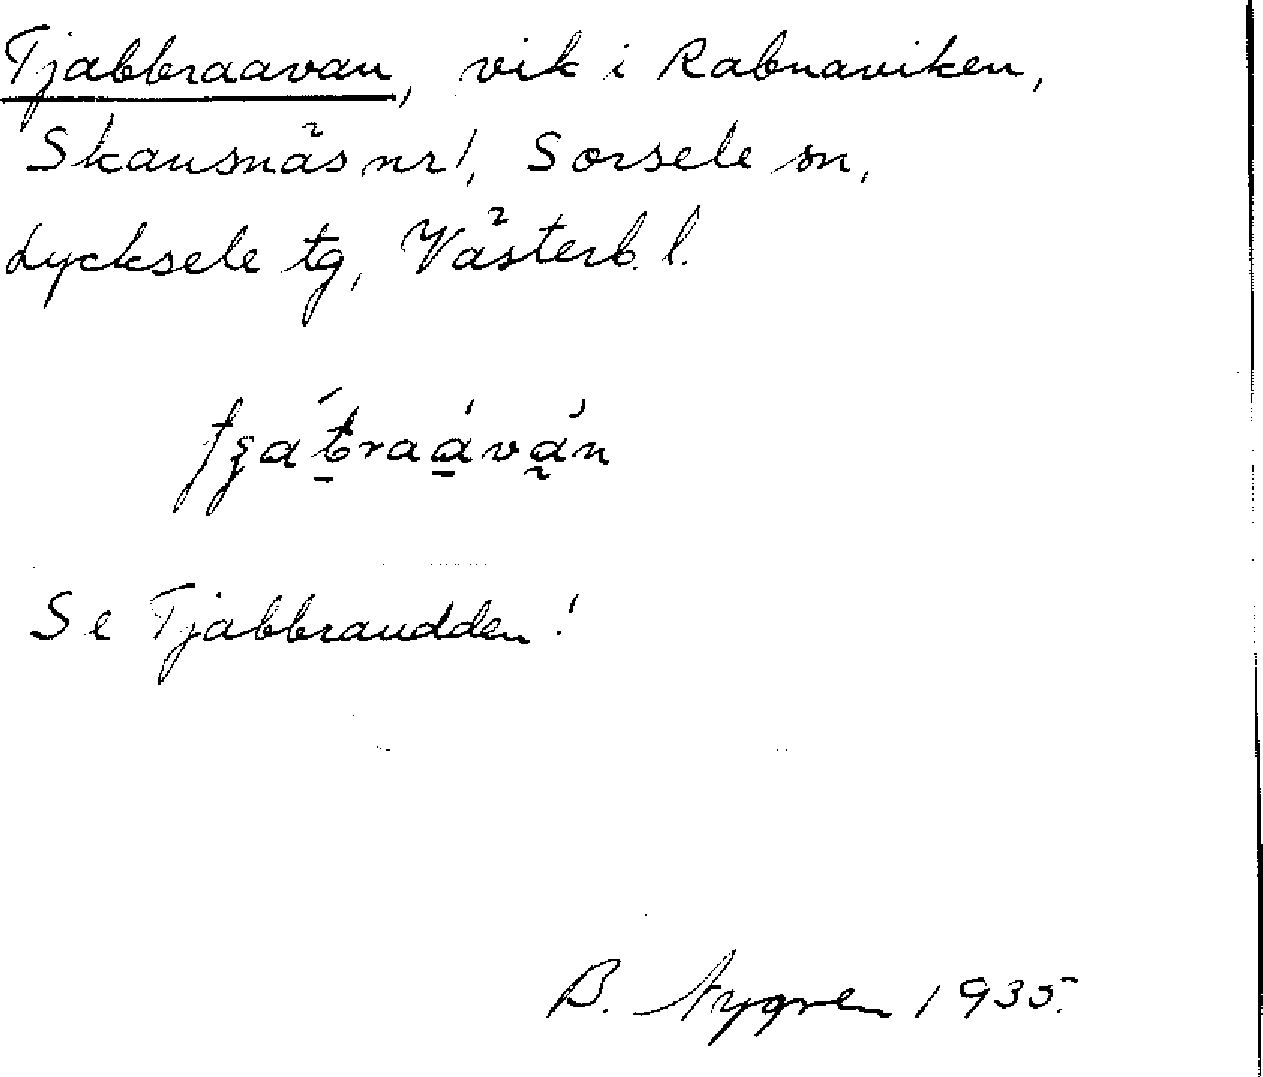 Tjabbraavan, vik i Rabnaviken,
Skansnäs nr 1, Sorsele sn,
Lycksele tg, Västerb. l.
Se Tjabbraudden!
B. Nygren 1935.